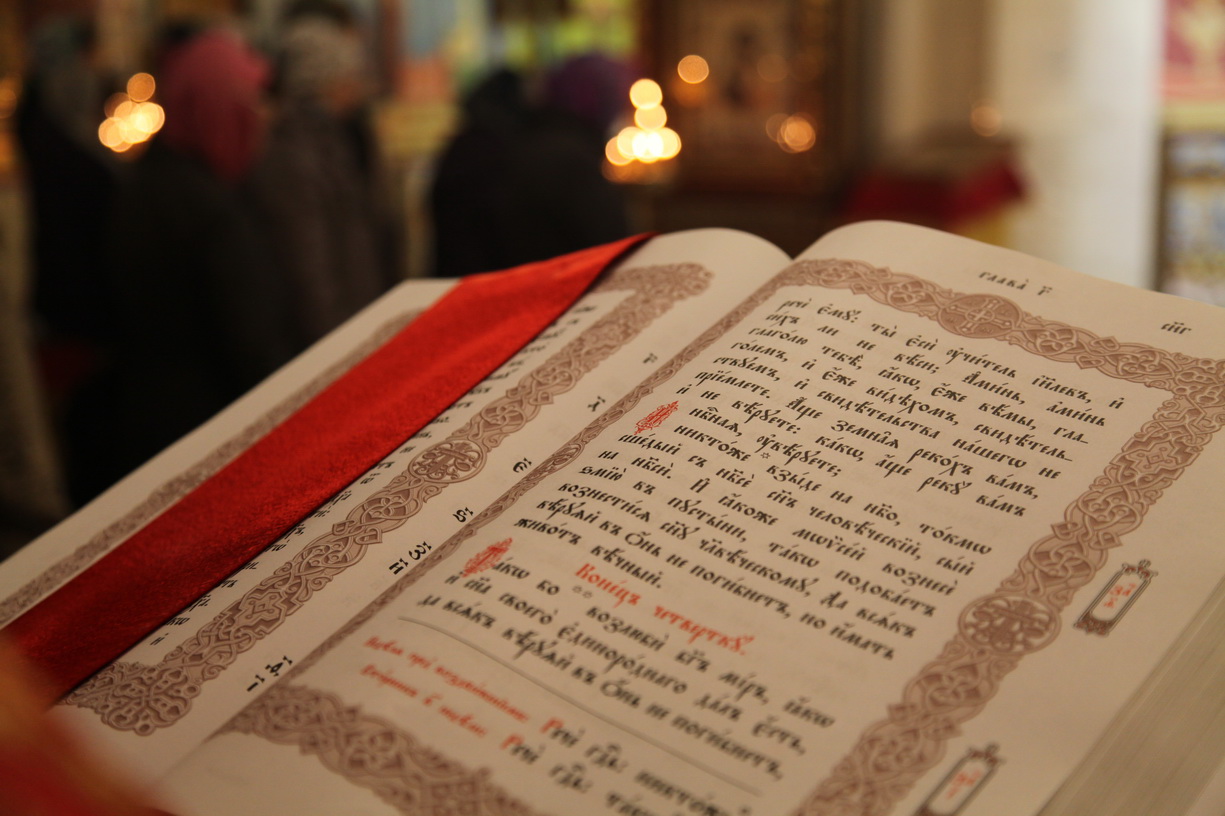 глава̀ г҃
сі҃г
речѐ є҆мꙋ̀: ты̀ є҆сѝ ᲂу҆чи́тель і҆и҃левъ, и҆
си́хъ ли не вѣ́си; А҆ми́нь, а҆ми́нь
глаго́лю тебѣ̀, ꙗ҆́кѡ, є҆́же вѣ́мы, гла-
го́лемъ, и҆ є҆́же ви́дѣхомъ, свидѣ́тель-
ствꙋемъ, и҆ свидѣ́тельства на́шегѡ не
прїе́млете. А҆́ще земна̑ѧ реко́хъ ва́мъ,
и҆ не вѣ́рꙋете: ка́кѡ, а҆́ще рекꙋ̀ ва́мъ
нбⷭ҇наѧ, ᲂу҆вѣ́рꙋете;
И҆ никто́же взы́де на нб҃о, то́кмѡ
сше́дый съ нб҃сѐ сн҃ъ человѣ́ческїй, сы́й
на нб҃сѝ. И҆ ꙗ҆́коже мѡѷсе́й вознесѐ
ѕмїю̀ въ пꙋсты́ни, та́кѡ подоба́етъ
вознести́сѧ сн҃ꙋ чл҃вѣ́ческомꙋ, да всѧ́къ
вѣ́рꙋѧй въ ѻ҆́нь не поги́бнетъ, но и҆́мать
живо́тъ вѣ́чный.
Коне́цъ четверткꙋ̀.
Та́кѡ бо возлюбѝ бг҃ъ мі́ръ, ꙗ҆́кѡ
и҆ сн҃а своего̀ є҆диноро́днаго да́лъ є҆́сть,
да всѧ́къ вѣ́рꙋѧй въ ѻ҆́нь не поги́бнетъ,
Речѐ гдⷭ҇ь: никто́же
Речѐ гдⷭ҇ь: